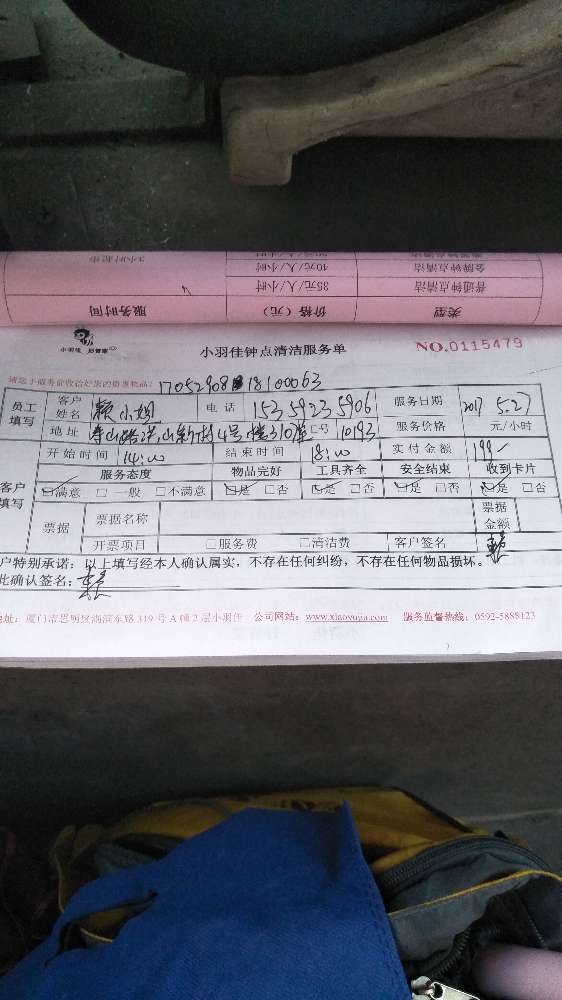 2小时起步
40元/人/小时
金牌钟点清洁
35元/人/小时
普通钟点清洁
服务时间 价格（元） 类型
小羽佳 小羽佳钟点清洁服务单 NO.0115479
17052908 18100063
员工填写 客户姓名 赖小姐 电话 15359235906 服务日期 2017 5.27
地址 4号楼310 工号 10193 服务价格 元/小时
开始时间 14:00 结束时间 18:00 实付金额 199
客户填写 服务态度 物品完好 工具齐全 安全结束 收到卡片
☑满意 □一般 □不满意 ☑是 □否 ☑是 □否 ☑是 □否 ☑是 □否
票据 票据名称 票据金额
开票项目 □服务费 □清洁费 客户签名 赖
户特别承诺：以上填写经本人确认属实，不存在任何纠纷，不存在任何物品损坏。
此确认签名：赖
地址：厦门市思明区湖滨东路319号A幢2层小羽佳 公司网站：www.xiaoyujia.com 服务监督热线：0592-5888123